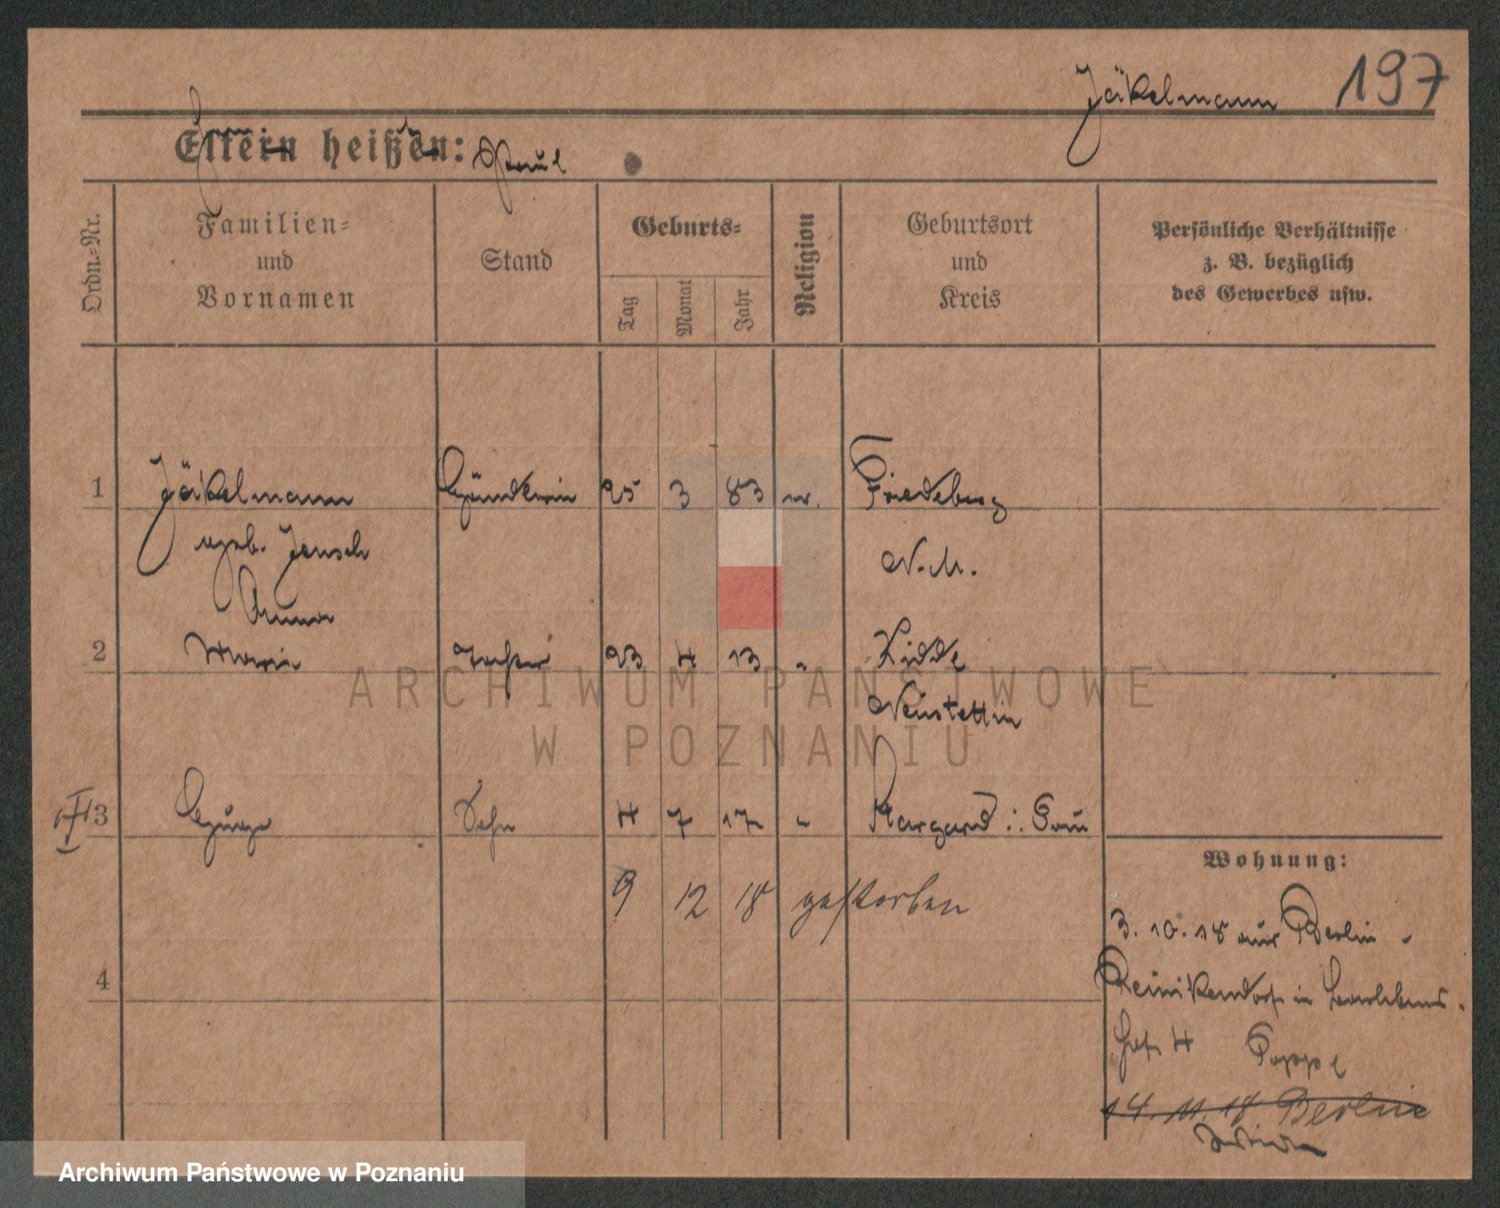 Jäkelmann 197
Eltern heißen: Paul
Ordn.-Nr.
Familien-
und
Vornamen
Stand
Geburts-
Tag
Monat
Jahr
Religion
Geburtsort
und
Kreis
Persönliche Verhältnisse
z. B. bezüglich
des Gewerbes usw.
1 Jäkelmann 25 3 83 Friedeberg
geb. Jensch N.M.
Anna
2 Maria Tochter 23 4 13 "
Neustettin
3 Sohn 4 7 17 " Stargard i. Pom
9 12 18 gestorben
4
Wohnung:
3. 10. 18 aus Berlin -
Reinikendorf in
4
14. 11. 18 Berlin
ARCHIWUM PAŃSTWOWE
W POZNANIU
Archiwum Państwowe w Poznaniu